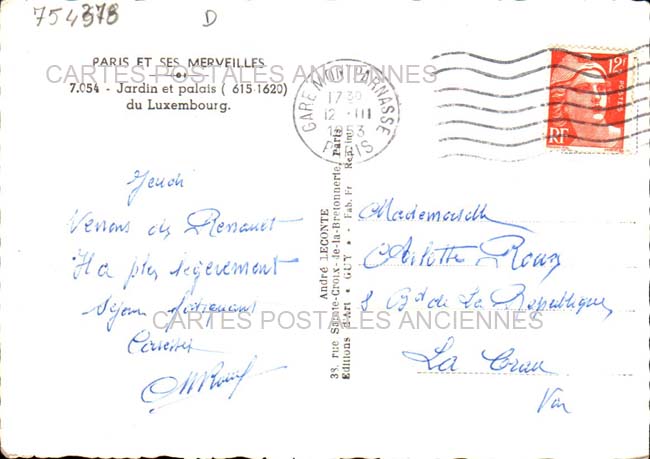 754378
D
PARIS ET SES MERVEILLES
7.054 - Jardin et palais ( 615-1620)
du Luxembourg.
CARTES POSTALES ANCIENNES
GARE MONTPARNASSE
1730
12 - III
1953
PARIS
12F
POSTES
RF
Jeudi
Venons de
Il a plu légèrement
Séjour
Caresses
André LECONTE
38, rue Sainte-Croix-de-la-Bretonnerie, Paris
Editions d'Art * GUY * - Fab. Fr Rep. Int
Mademoiselle
Arlette Roux
8 Bd de La République
La Crau
Var
CARTES POSTALES ANCIENNES